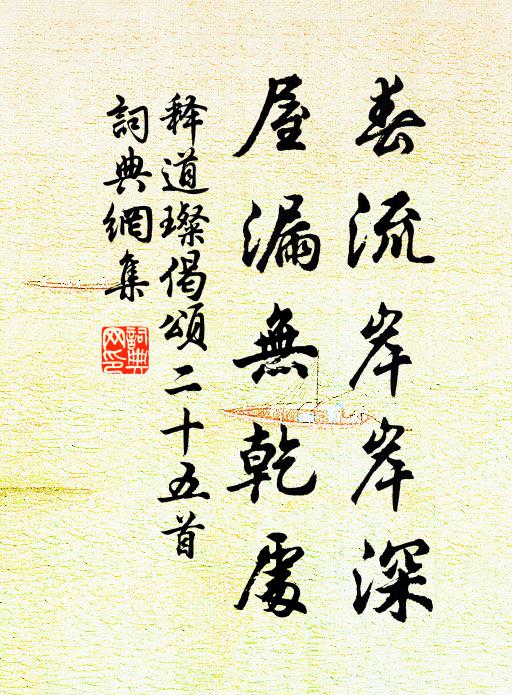 春流岸岸深
屋漏無乾處
释道璨偈頌二十五首
詞典網集
詞典網印